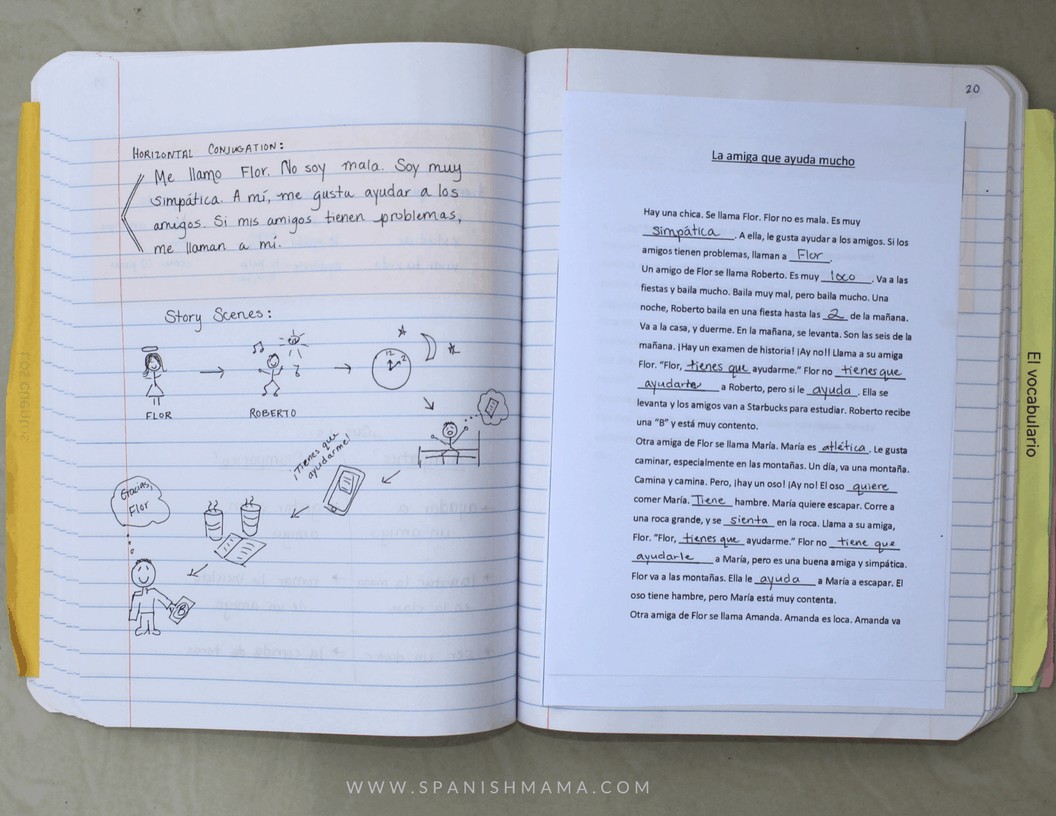 HORIZONTAL CONJUGATION:
Me llamo Flor. No soy mala. Soy muy
simpática. A mí, me gusta ayudar a los
amigos. Si mis amigos tienen problemas,
me llaman a mí.
Story Scenes:
12
2
FLOR
ROBERTO
¡Tienes que
ayudarme!
Gracias,
Flor
B
20
La amiga que ayuda mucho
Hay una chica. Se llama Flor. Flor no es mala. Es muy
simpática. A ella, le gusta ayudar a los amigos. Si los
amigos tienen problemas, llaman a Flor.
Un amigo de Flor se llama Roberto. Es muy loco. Va a las
fiestas y baila mucho. Baila muy mal, pero baila mucho. Una
noche, Roberto baila en una fiesta hasta las 2 de la mañana.
Va a la casa, y duerme. En la mañana, se levanta. Son las seis de la
mañana. ¡Hay un examen de historia! ¡Ay no!! Llama a su amiga
Flor. "Flor, tienes que ayudarme." Flor no tienes que
ayudarte a Roberto, pero si le ayuda. Ella se
levanta y los amigos van a Starbucks para estudiar. Roberto recibe
una "B" y está muy contento.
Otra amiga de Flor se llama María. María es atlética. Le gusta
caminar, especialmente en las montañas. Un día, va una montaña.
Camina y camina. Pero, ¡hay un oso! ¡Ay no! El oso quiere
comer María. Tiene hambre. María quiere escapar. Corre a
una roca grande, y se sienta en la roca. Llama a su amiga,
Flor. "Flor, tienes que ayudarme." Flor no tiene que
ayudarle a María, pero es una buena amiga y simpática.
Flor va a las montañas. Ella le ayuda a María a escapar. El
oso tiene hambre, pero María está muy contenta.
Otra amiga de Flor se llama Amanda. Amanda es loca. Amanda va
El vocabulario
WWW.SPANISHMAMA.COM